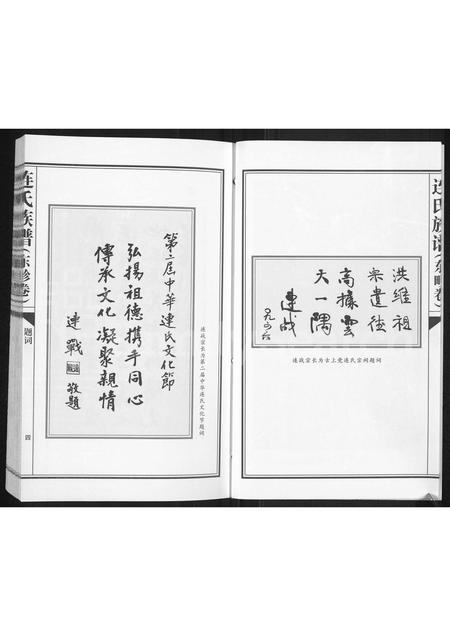 连氏族谱(东眕卷)
洪维祖
宗遗德
高擡云
天一隅
连战
连战宗长为古上党连氏宗祠题词
连氏族谱(东眕卷)
题词
四
第二届中华連氏文化節
弘揚祖德携手同心
傳承文化凝聚親情
連戰
敬題
连战宗长为第二届中华连氏文化节题词